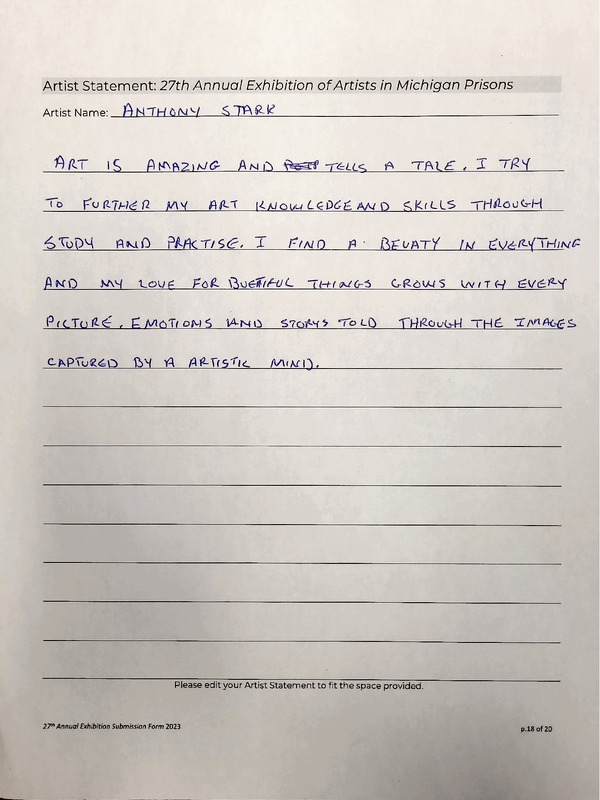 Artist Statement: 27th Annual Exhibition of Artists in Michigan Prisons
Artist Name: ANTHONY STARK
ART IS AMAZING AND TELLS A TALE. I TRY
TO FURTHER MY ART KNOWLEDGE AND SKILLS THROUGH
STUDY AND PRACTISE. I FIND A BEUATY IN EVERYTHING
AND MY LOVE FOR BUETIFUL THINGS GROWS WITH EVERY
PICTURE. EMOTIONS AND STORYS TOLD THROUGH THE IMAGES
CAPTURED BY A ARTISTIC MIND.
Please edit your Artist Statement to fit the space provided.
27th Annual Exhibition Submission Form 2023
p.18 of 20